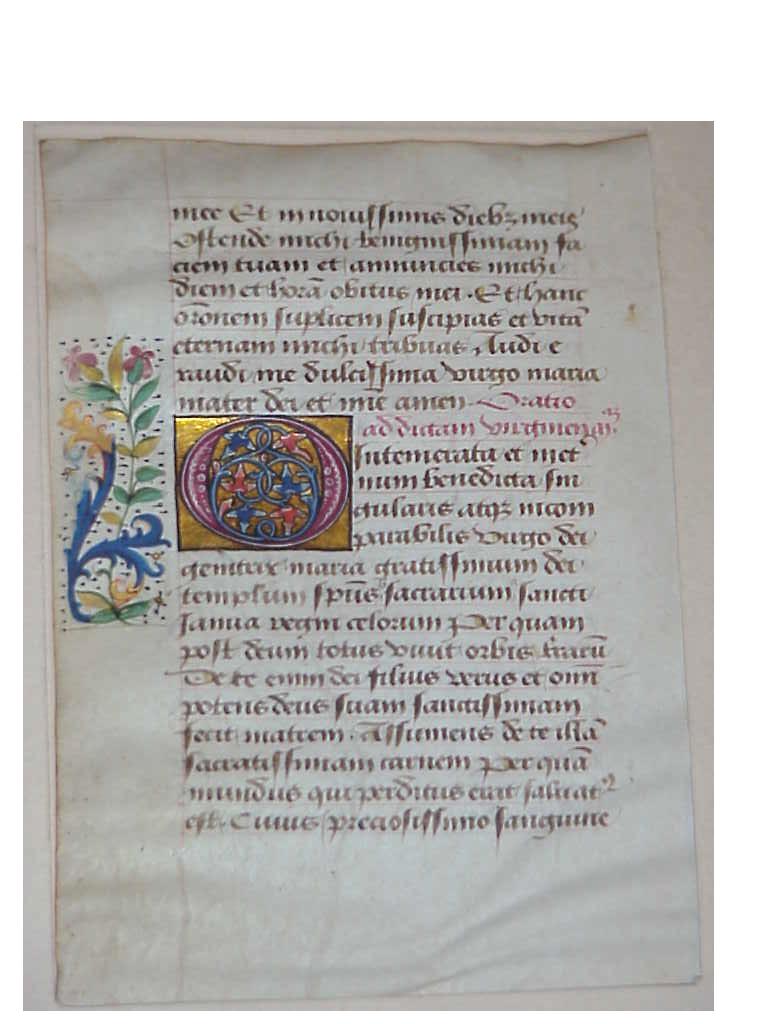 mee Et in nouissimis dieb; meis
Ostende michi benignissimam fa
ciem tuam et annuncies michi
diem et horā obitus mei. Et hanc
orōnem suplicem suscipias et vitā
eternam michi tribuas, Audi e
xaudi me dulcissima virgo maria
mater dei et mīe amen. Oratio
ad dictam virginem
O Intemerata et in et
num benedicta sin
gularis atq; incom
parabilis virgo dei
genitrix maria gratissimum dei
templum spūs sacrarium sancti
Ianua regni celorum Per quam
post deum totus viuit orbis trarū
De te enim dei filius verus et omī
potens deus suam sanctissimam
fecit matrem. Assumens de te illā
sacratissimam carnem Per quā
mundus qui perditus erat saluat
est. Cuius preciosissimo sanguine